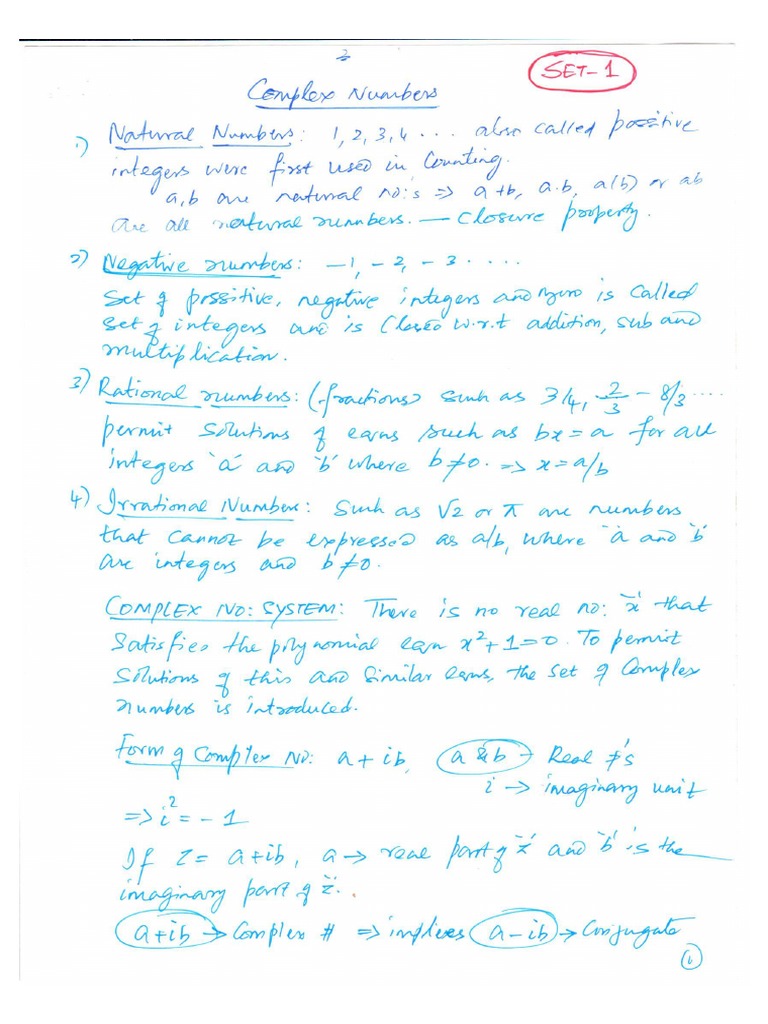 SET-1
Complex Numbers
1) Natural Numbers: 1, 2, 3, 4 .... also called possitive
integers were first used in Counting.
a, b are natural no:s => a+b, a.b, a(b) or ab
are all natural numbers. — Closure property.
2) Negative numbers: -1, -2, -3 ....
Set of possitive, negative integers and zero is called
set of integers and is closed w.r.t addition, sub and
multiplication.
3) Rational numbers: (fractions) such as 3/4, 2/3 - 8/3 ....
permit solutions of eqns such as bx = a for all
integers 'a' and 'b' where b≠0. => x = a/b
4) Irrational Numbers: Such as √2 or π are numbers
that cannot be expressed as a/b, where 'a' and 'b'
are integers and b≠0.
COMPLEX NO: SYSTEM: There is no real no: 'x' that
satisfies the polynomial eqn x²+1=0. To permit
solutions of this and similar eqns, the set of Complex
numbers is introduced.
Form of Complex No: a + ib, a & b → Real #'s
i → imaginary unit
=> i² = -1
If z = a+ib, a → real part of 'z' and 'b' is the
imaginary part of 'z'.
a+ib → Complex # => implies a-ib → Conjugate
1